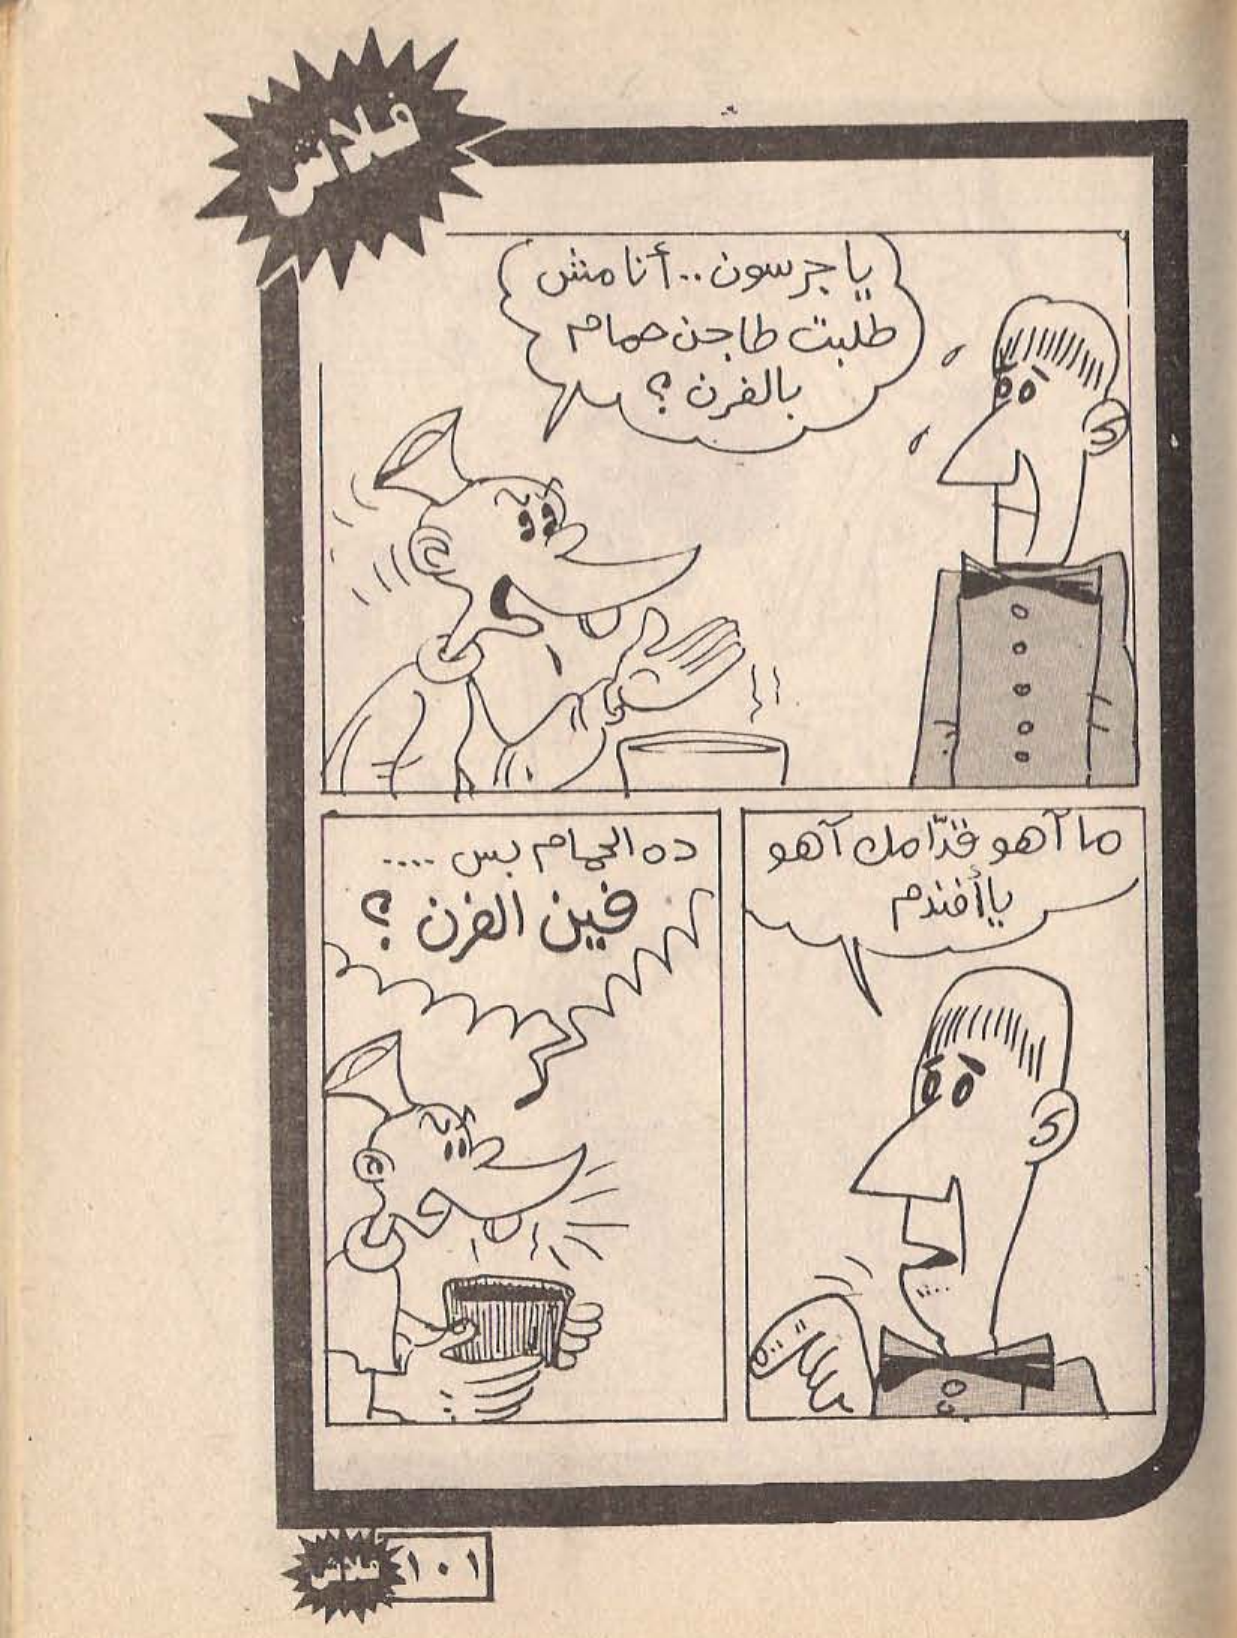 فلاش
يا جرسون.. أنا مش
طلبت طاجن حمام
بالفرن ؟
ما آهو قدّامك آهو
يا أفندم
ده الحمام بس ....
فين الفرن ؟
فلاش
١٠١